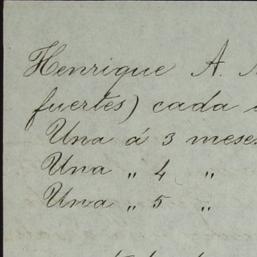 Henrique A.
fuertes) cada
Una á 3 meses
Una „ 4 „
Una „ 5 „